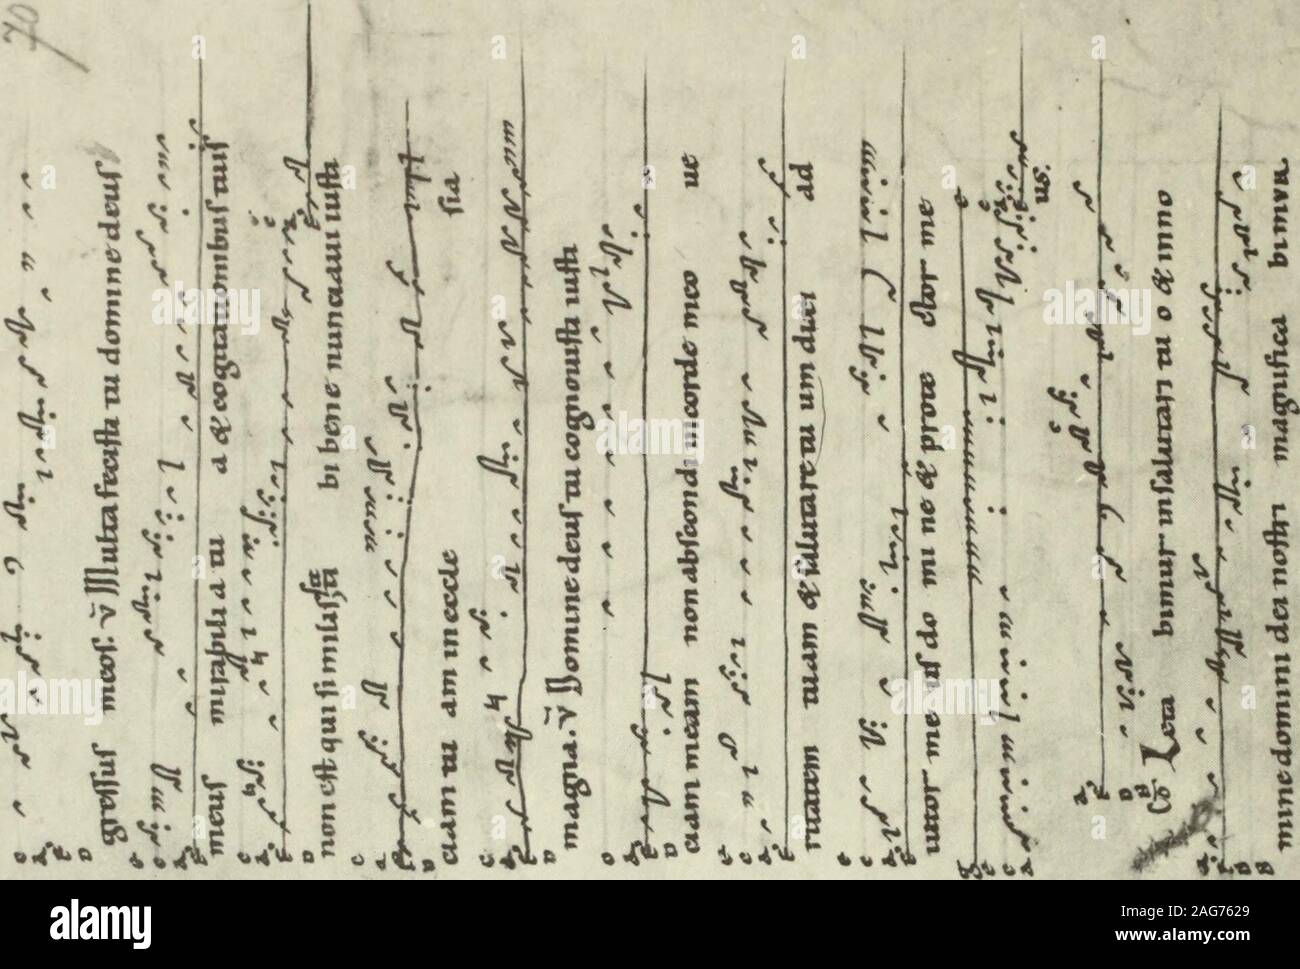 70
gressus meos. v̄ Multa fecisti tu domine deus
meus mirabilia tu a & cogitationibus tuis
non est qui similis sit ti bi bene nunciaui iusti
ciam tu am in eccle sia
magna. v̄ Domine deus tu cognouisti iusti
ciam meam non abscondi in corde meo ue
ritatem tuam & salutare tu um dixi ad
iutor me us do mi ne & prote ctor me
us.
Co Leta bimur in salutari tu o & in no
mine domini dei nostri magnifica bimur.
alamy
Image ID: 2AG7629
www.alamy.com